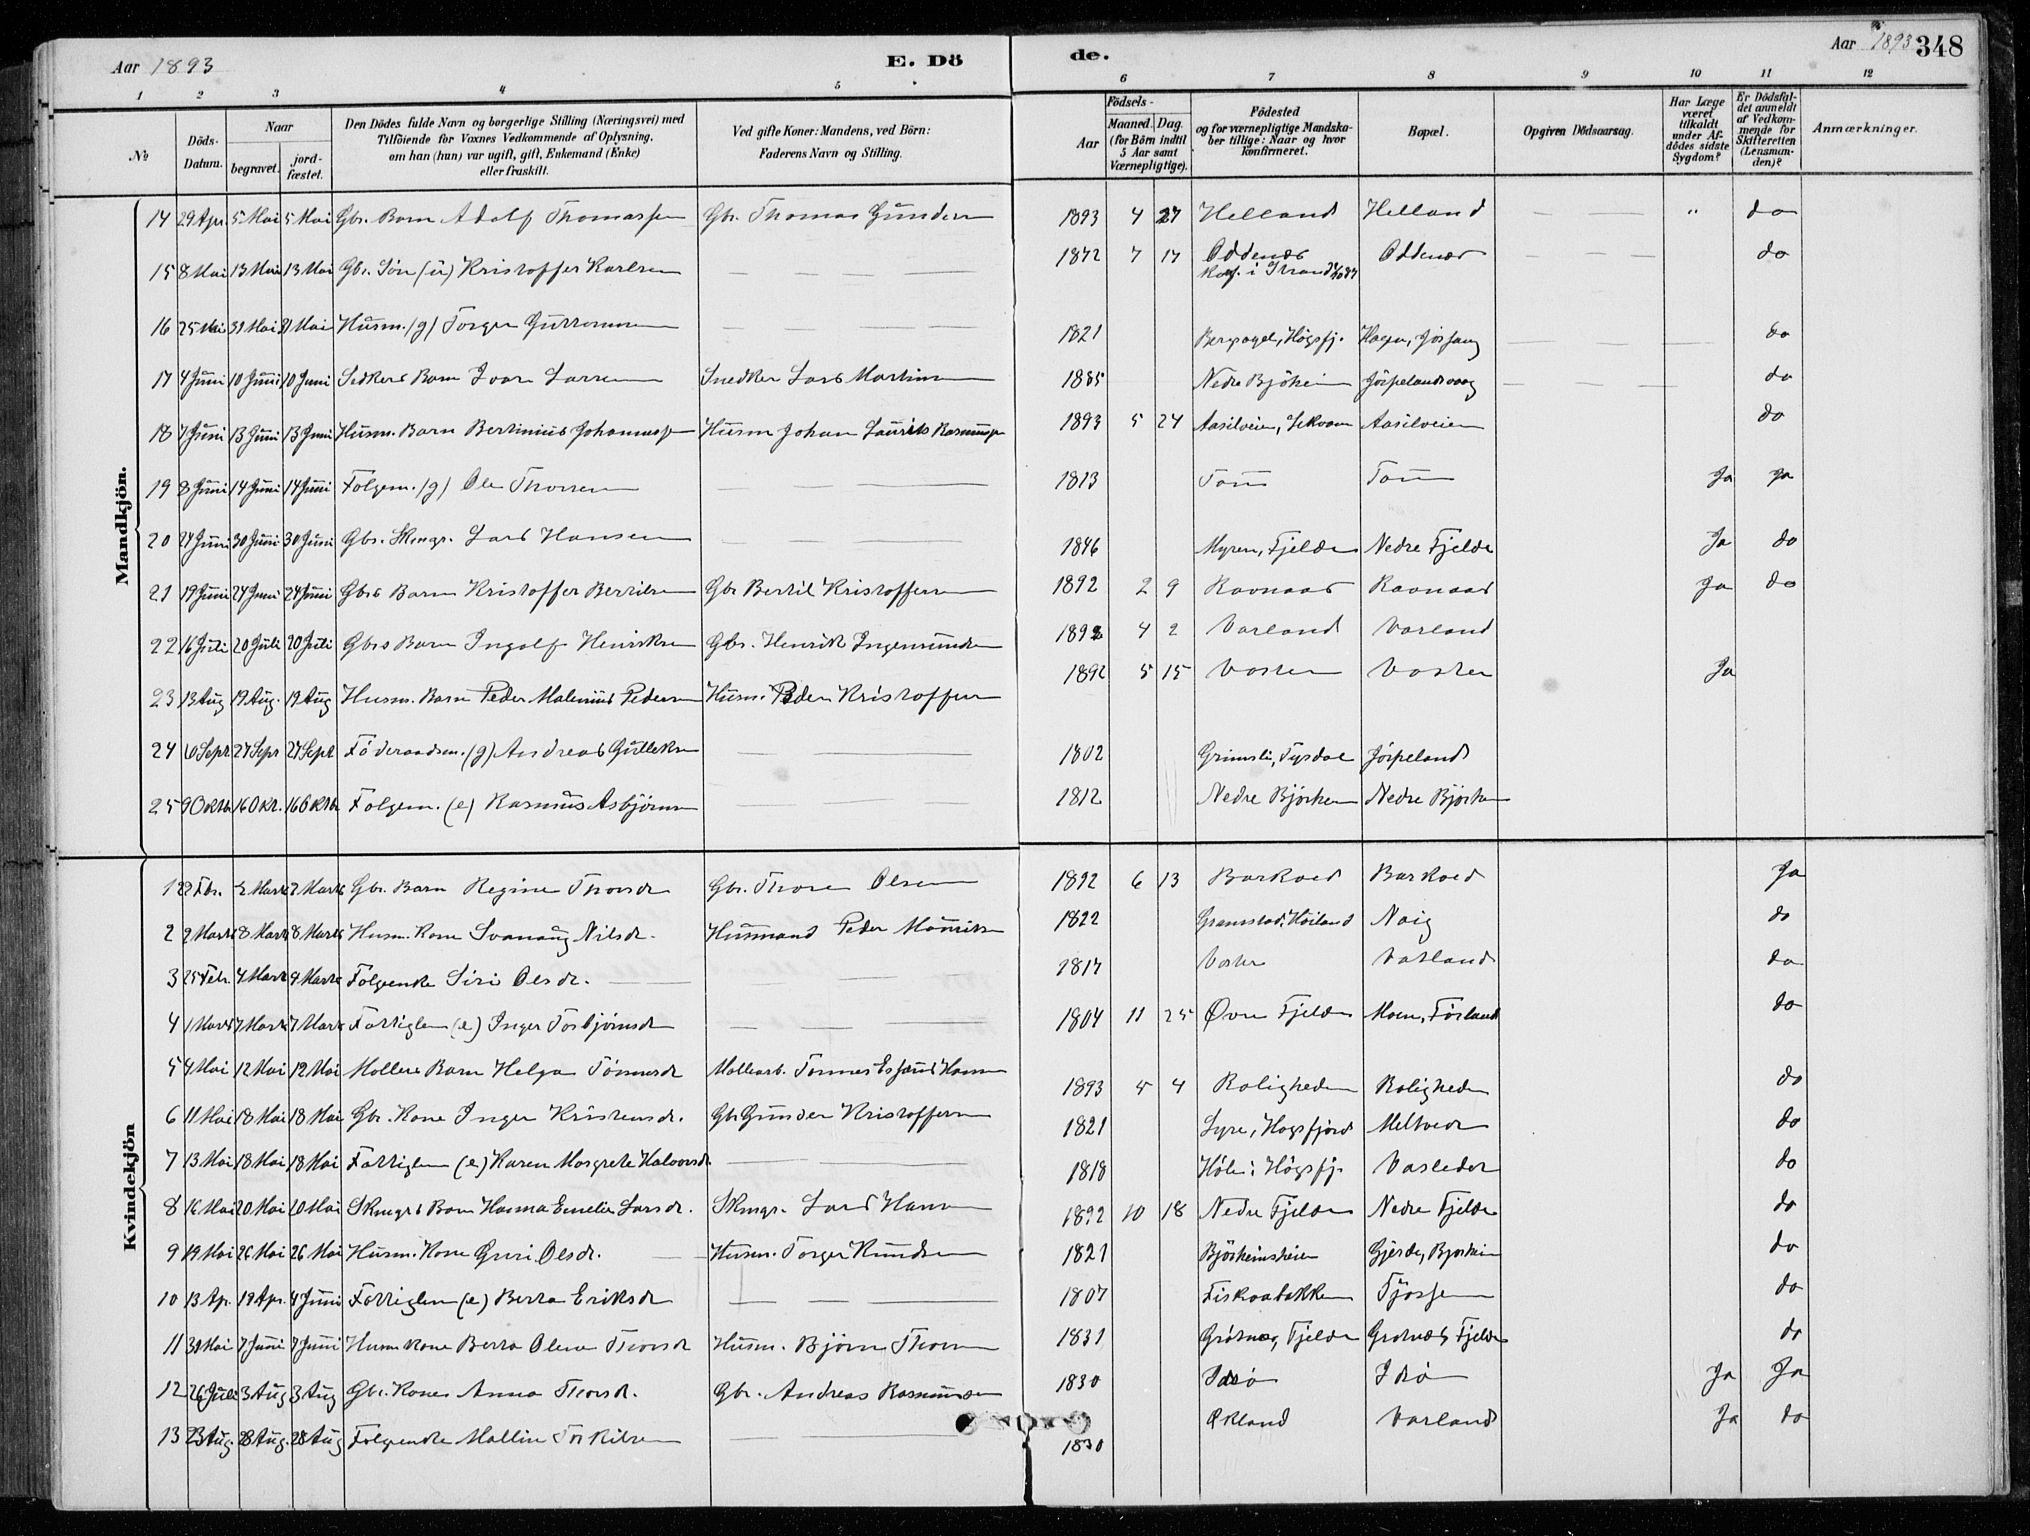 Aar 1893
E. Dö
de.
Aar 1893 348
1 2 3 4 5 6 7 8 9 10 11 12
№
Döds-Datum.
Naar begravet. jordfæstet.
Den Dödes fulde Navn og borgerlige Stilling (Næringsvei) med Tilföiende for Voxnes Vedkommende af Oplysning, om han (hun) var ugift, gift, Enkemand (Enke) eller fraskilt.
Ved gifte Koner: Mandens, ved Börn: Faderens Navn og Stilling.
Födsels-
Aar
Maaned. Dag. (for Börn indtil 5 Aar samt Værnepligtige).
Födested og for værnepligtige Mandskaber tillige: Naar og hvor konfirmeret.
Bopæl.
Opgiven Dödsaarsag.
Har Læge været tilkaldt under Afdödes sidste Sygdom?
Er Dödsfaldet anmeldt af Vedkommende for Skifteretten (Lensmanden)?
Anmærkninger.
Mandkjön.
14 29 Apr. 5 Mai 5 Mai Gbr. Barn Adolf Thomassen Gbr. Thomas Gundersen 1893 4 27 Helland Helland — — " do
15 8 Mai 13 Mai 13 Mai Gbr. Søn (ú) Kristoffer Karlsen — — — 1872 7 17 Oddenæs Oddenæs — — — do
Konf. i Strand
16 25 Mai 31 Mai 31 Mai Husm. (g) Torger Guttormsen — — — 1821 Bergsagel, Högsfj. Hagen, Jössang — — — do
17 4 Juni 10 Juni 10 Juni Sedkers Barn Ivar Larsen Snedker Lars Martinsen 1885 Nedre Bjöheim Jörpelandsvaag — — — do
18 7 Juni 13 Juni 13 Juni Husm. Barn Bertinius Johannessen Husm Johan Laurits Rasmussen 1893 5 24 Aasilveien, Lekvam Aasilveien do
19 8 Juni 14 Juni 14 Juni Folgem. (g) Ole Thorsen — — — 1813 Tau Tau Ja Ja
20 24 Juni 30 Juni 30 Juni Gbr. Skmgr. Lars Hansen — — — 1846 Myren, Fjelde Nedre Fjelde Ja do
21 19 Juni 24 Juni 24 Juni Gbrs Barn Kristoffer Bertilsen Gbr Bertil Kristoffersen 1892 2 9 Ravnaas Ravnaas Ja do
22 16 Juli 20 Juli 20 Juli Gbrs Barn Ingolf Henriksen Gbr. Henrik Ingemundsen 1892 4 2 Varland Varland
23 13 Aug 19 Aug. 19 Aug Husm. Barn Peder Malenius Pedersen Husm. Peder Kristoffersen 1892 5 15 Vaster Vaster Ja
24 6 Sept 27 Sept 27 Sept Föderaadsm. (g) Andreas Gulleksen — — — 1802 Grimsli, Tysdal Jörpeland
25 9 Oktb 16 Okt. 16 Oktb Folgem. (e) Rasmus Asbjörnsen — — — 1812 Nedre Bjørheim Nedre Bjørheim
Kvindekjön
1 22 Febr. 2 Marts 2 Marts Gbr. Barn Regine Thorsdr Gbr. Thore Olsen 1892 6 13 Barkved Barkved Ja
2 2 Marts 8 Marts 8 Marts Husm. Kone Svanaug Nilsdr. Husmand Peder Mauritsen 1822 Gramstad, Høiland Naig do
3 25 Febr. 4 Marts 4 Marts Folgenke Siri Olsdr. — — — 1817 Vaster Vatland do
4 1 Marts 7 Marts 7 Marts Fattiglem (e) Inger Torbjörnsdr — — — 1804 11 25 Øvre Fjelde Moen, Förland do
5 4 Mai 12 Mai 12 Mai Mollers Barn Helga Tönnesdr Mollearb. Tonnes Hansen 1893 4 Roligheden Roligheden do
6 11 Mai 18 Mai 18 Mai Gbr. Kone Inger Kristensdr. Gbr Gunder Kristoffersen 1821 Lyre, Hogsfjord Meltveit do
7 13 Mai 18 Mai 18 Mai Fattiglem (e) Karen Margrete Halvorsdr — — — 1818 Höle i Högsfj. Vasledet do
8 16 Mai 20 Mai 20 Mai Skmgrs Barn Hanna Emelie Larsdr. Skmgr. Lars Hansen 1892 10 18 Nedre Fjelde Nedre Fjelde do
9 19 Mai 26 Mai 26 Mai Husm. Kone Guri Olsdr. — Husm. Torger Knudsen 1821 Björheimsheien Gjerde, Bjorheim do
10 13 Ap. 19 Apr. 4 Juni Fattiglem (e) Berta Eriksdr — — — 1807 Fiskaabakken Tjössem do
11 31 Mai 7 Juni 7 Juni Husm Kone Berta Olene Thorsdr Husm. Björn Thorsen 1831 Grötnes, Fjelde Grotnes, Fjelde do
12 26 Juli 3 Aug 3 Aug Gbr. Kone Anna Thorsdr. Gbr. Andreas Rasmussen 1830 Idsö Idsö Ja Ja
13 23 Aug. 28 Aug. 28 Aug Folgenke Mallin Torkilsen — — 1830 Økland Varland Ja do